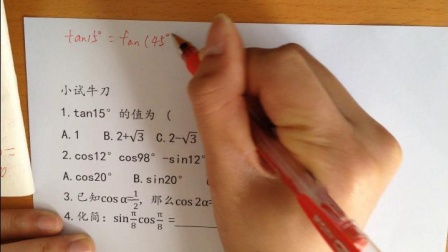 tan15° = tan(45°
小试牛刀
1.tan15°的值为 (
A.1 B.2+√3 C.2-√3
2.cos12°cos98°-sin12°
A.cos20° B.sin20°
3.已知cosα=1/2, 那么cos2α=
4.化简: sin π/8 cos π/8 =